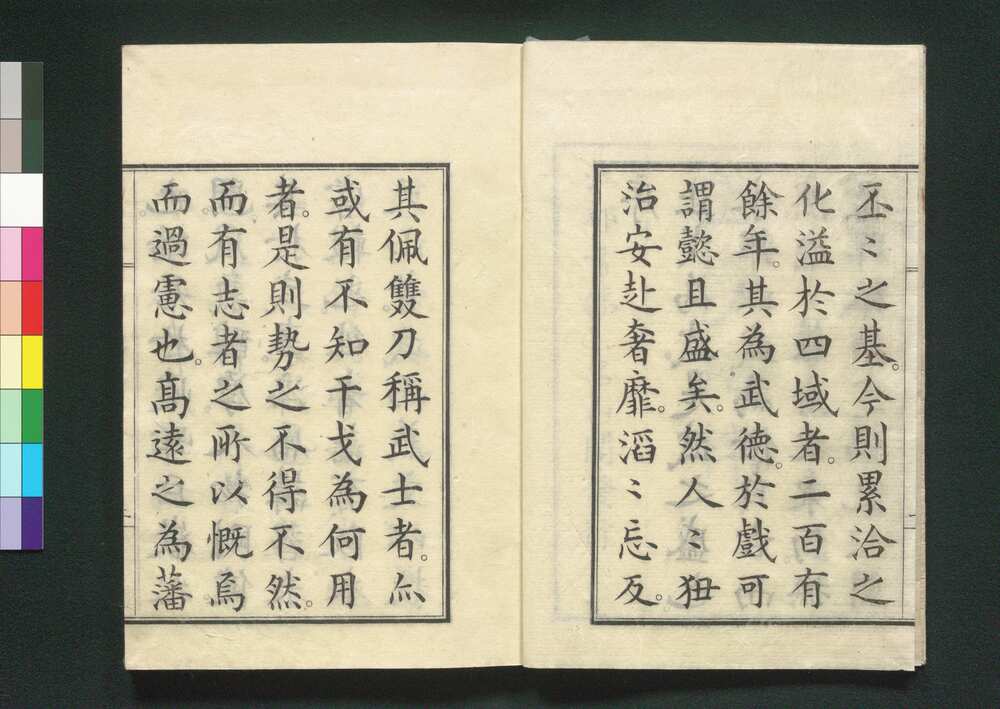 丕〻之基。今則累洽之
化溢於四域者。二百有
餘年。其為武徳。於戲可
謂懿且盛矣。然人〻狃
治安赴奢靡。滔〻忘反。
其佩雙刀稱武士者。亦
或有不知干戈為何用
者。是則勢之不得不然。
而有志者之所以慨焉
而過慮也。髙遠之為藩